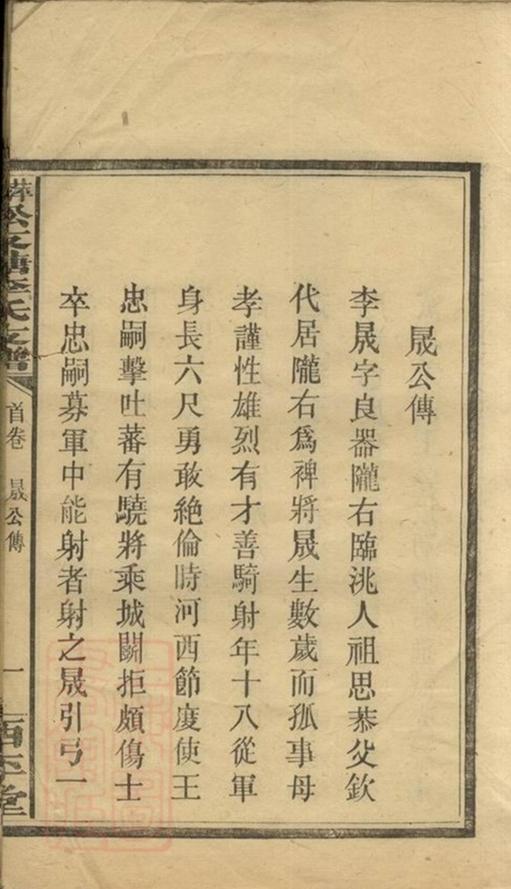 晟公傳
李晟字良器隴右臨洮人祖思恭父欽
代居隴右爲裨將晟生數歲而孤事母
孝謹性雄烈有才善騎射年十八從軍
身長六尺勇敢絶倫時河西節度使王
忠嗣擊吐蕃有驍將乘城鬭拒頗傷士
卒忠嗣募軍中能射者射之晟引弓一
李氏支譜
首卷 晟公傳
一
西平堂